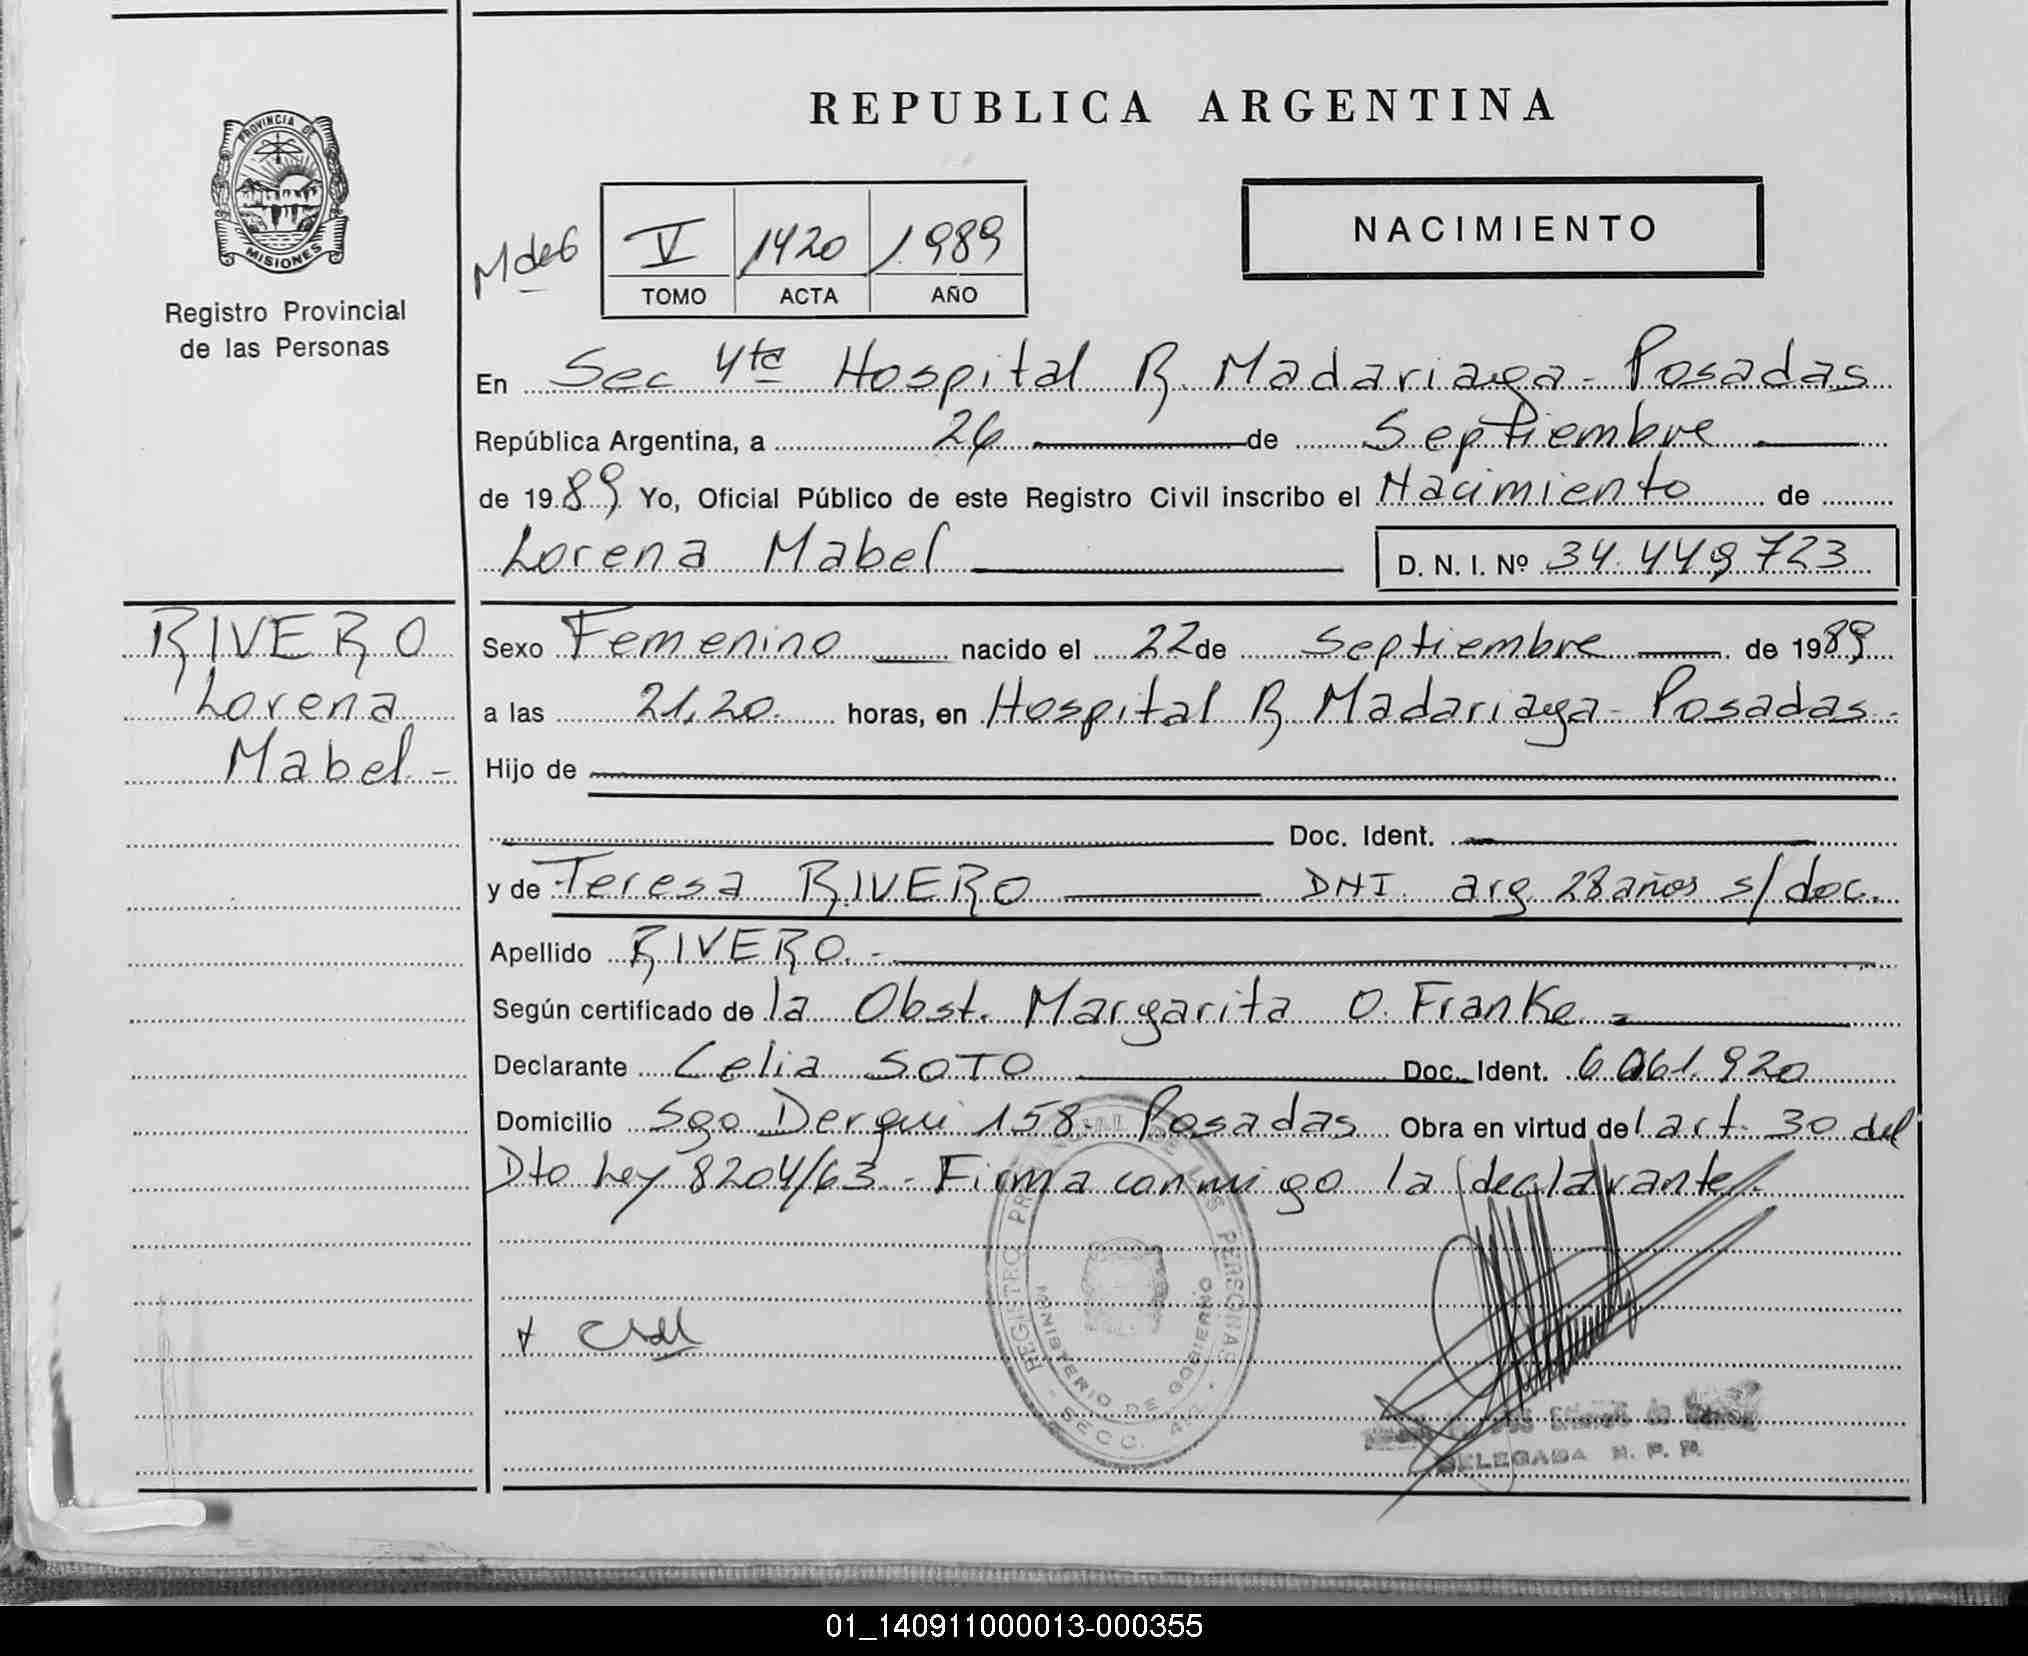 REPUBLICA ARGENTINA
PROVINCIA DE
MISIONES
Registro Provincial
de las Personas
NACIMIENTO
M de G
V 1420 1989
TOMO ACTA AÑO
En Sec 4ta Hospital R. Madariaga - Posadas
República Argentina, a 26 de Septiembre
de 1989 Yo, Oficial Público de este Registro Civil inscribo el Nacimiento de
Lorena Mabel D. N. I. Nº 34.449.723
RIVERO
Lorena
Mabel -
Sexo Femenino nacido el 22 de Septiembre de 1989
a las 21,20 horas, en Hospital R. Madariaga - Posadas -
Hijo de
Doc. Ident.
y de Teresa RIVERO DNI. arg 28 años s/doc.
Apellido RIVERO. -
Según certificado de la Obst. Margarita O. Franke. -
Declarante Celia SOTO Doc. Ident. 6.061.920
Domicilio Sgo Derqui 158 - Posadas Obra en virtud del art. 30 del
Dto Ley 8204/63 - Firma conmigo la declarante.
REGISTRO PROVINCIAL DE LAS PERSONAS
MINISTERIO DE GOBIERNO
SECC. 4ta.
DELEGADA R. P. P.
01_140911000013-000355